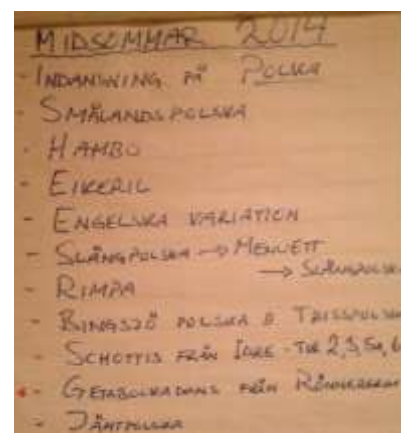 MIDSOMMAR 2014
- INDANSNING PÅ POLKA
- SMÅLANDSPOLSKA
- HAMBO
- EIKERIL
- ENGELSKA VARIATION
- SLÄNGPOLSKA → MENUETT
→ SLÄNGPOLSKA
- RIMPA
- BINGSJÖ POLSKA & TRISSPOLSKA
- SCHOTTIS FRÅN IDRE - TUR 2,3,5a,6
- GETABOCKADANS FRÅN
- JÄMTPOLSKA